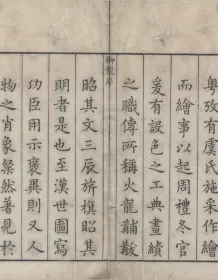 粵攷有虞氏施采作繪
而繪事以起周禮冬官
爰有設色之工典畫繢
之職傳所稱火龍黼黻
御製序
昭其文三辰旂旗昭其
明者是也至漢世圖寫
功臣用示褒異則又人
物之肖象粲然著見於